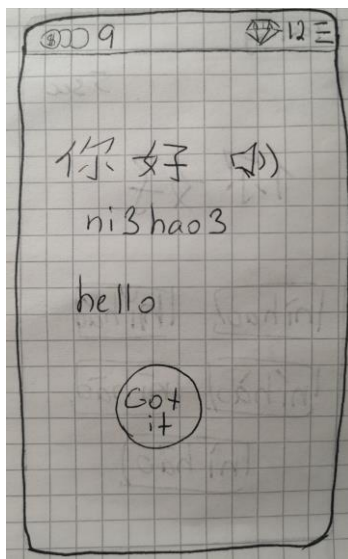 $ 9 12
你好
ni3hao3
hello
Got
it